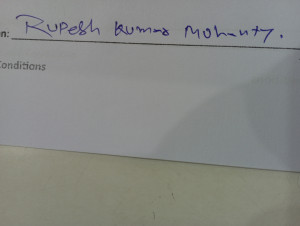 n: Rupesh Kumar Mohanty.
Conditions